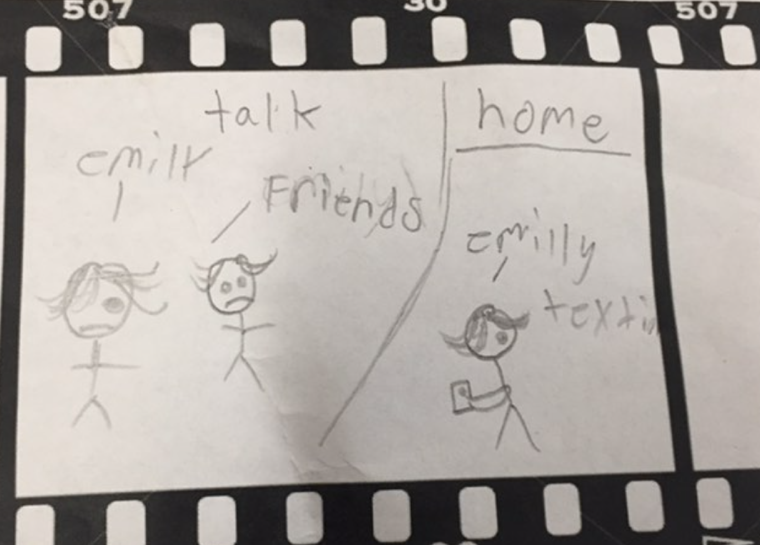 507 30 507
talk
emily
Friends
home
emilly
textin